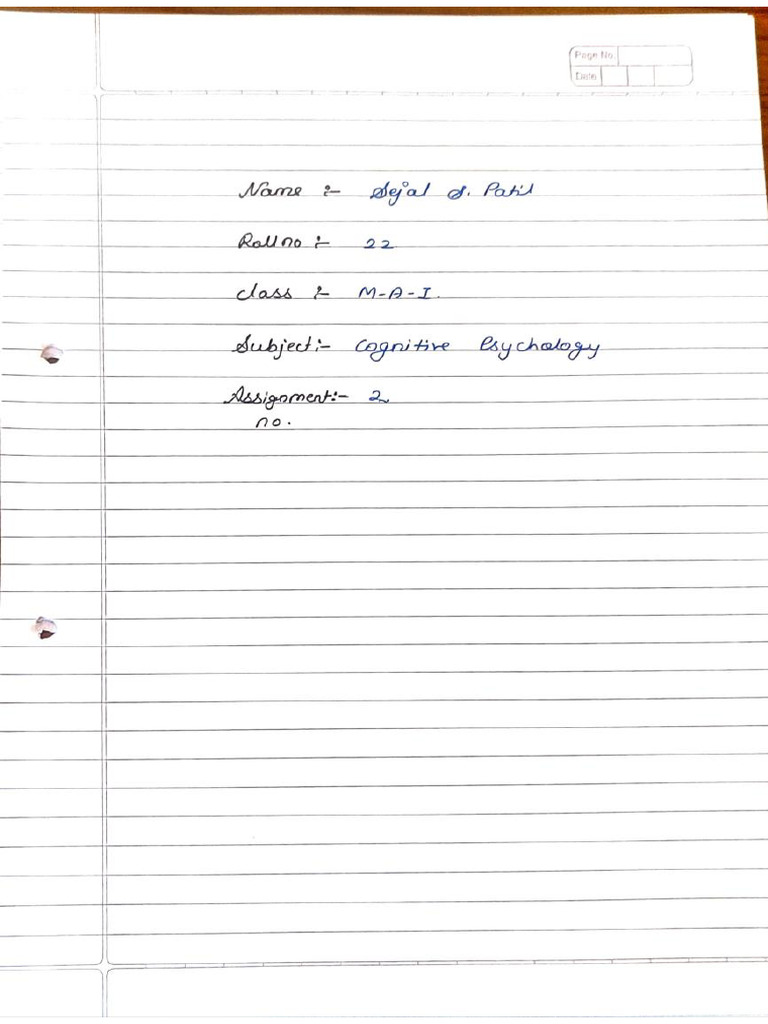 Page No.
Date
Name :- Sejal S. Patil
Roll no :- 22
class :- M-A-I.
Subject:- Cognitive Psychology
Assignment:- 2
no.